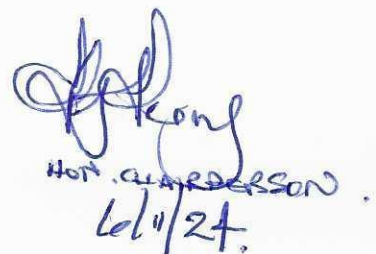 HON. CHAIRPERSON.
6/11/24.